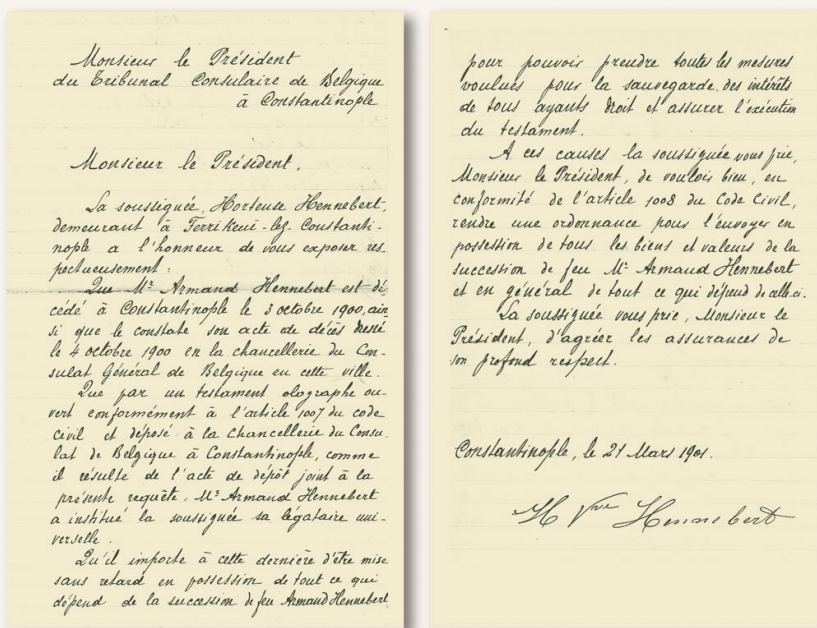 Monsieur le Président
du Tribunal Consulaire de Belgique
à Constantinople
Monsieur le Président,
La soussignée, Hortense Hennebert,
demeurant à Ferrikeui-lez-Constanti-
nople a l'honneur de vous exposer res-
pectueusement :
Que Mr Armand Hennebert est dé-
cédé à Constantinople le 3 octobre 1900, ain-
si que le constate son acte de décès dressé
le 4 octobre 1900 en la chancellerie du Con-
sulat Général de Belgique en cette ville.
Que par un testament olographe ou-
vert conformément à l'article 1007 du code
civil et déposé à la Chancellerie du Consu-
lat de Belgique à Constantinople, comme
il résulte de l'acte de dépôt joint à la
présente requête, Mr Armand Hennebert
a institué la soussignée sa légataire uni-
verselle.
Qu'il importe à cette dernière d'être mise
sans retard en possession de tout ce qui
dépend de la succession de feu Armand Hennebert
pour pouvoir prendre toutes les mesures
voulues pour la sauvegarde des intérêts
de tous ayants droit et assurer l'exécution
du testament.
A ces causes la soussignée vous prie,
Monsieur le Président, de vouloir bien, en
conformité de l'article 1008 du Code Civil,
rendre une ordonnance pour l'envoyer en
possession de tous les biens et valeurs de la
succession de feu Mr Armand Hennebert
et en général de tout ce qui dépend de celle-ci.
La soussignée vous prie, Monsieur le
Président, d'agréer les assurances de
son profond respect.
Constantinople, le 21 Mars 1901.
H Vve Hennebert